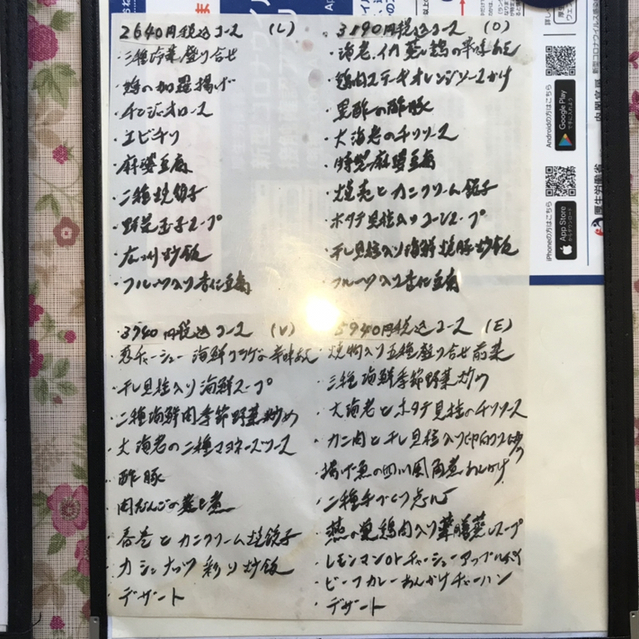 2640円税込コース (L)
・三種冷菜盛り合せ
・鶏の加羅揚げ
・チンジャオロース
・エビチリ
・麻婆豆腐
・二種焼餃子
・野菜玉子スープ
・広州炒飯
・フルーツ入り杏仁豆腐
(O)
・鶏肉ステーキオレンジソースかけ
・黒酢の酢豚
・大海老のチリソース
・特製麻婆豆腐
・カニクリーム餃子
・ホタテ貝柱入りコーンスープ
・干し貝柱入り海鮮焼豚炒飯
・フルーツ入り杏仁豆腐
3740円税込コース (V)
・干し貝柱入り海鮮スープ
・二種海鮮肉季節野菜炒め
・大海老の二種マヨネーズソース
・酢豚
・肉だんごの煮
・春巻とカニクリーム焼餃子
・カシュナッツ彩り炒飯
・デザート
5940円税込コース (E)
・焼物入り五種盛り合せ前菜
・三種海鮮季節野菜炒め
・大海老とホタテ貝柱のチリソース
・カニ肉と干し貝柱入り
・揚げ魚の四川風角煮あんかけ
・二種手づくり点心
・燕の巣鶏肉入り薬膳蒸しスープ
・レモンマンゴーチャーシューアップルパイ
・ビーフカレーあんかけチャーハン
・デザート
Androidの方はこちら
Google Play
で手に入れよう
iPhoneの方はこちら
App Store
からダウンロード
厚生労働省